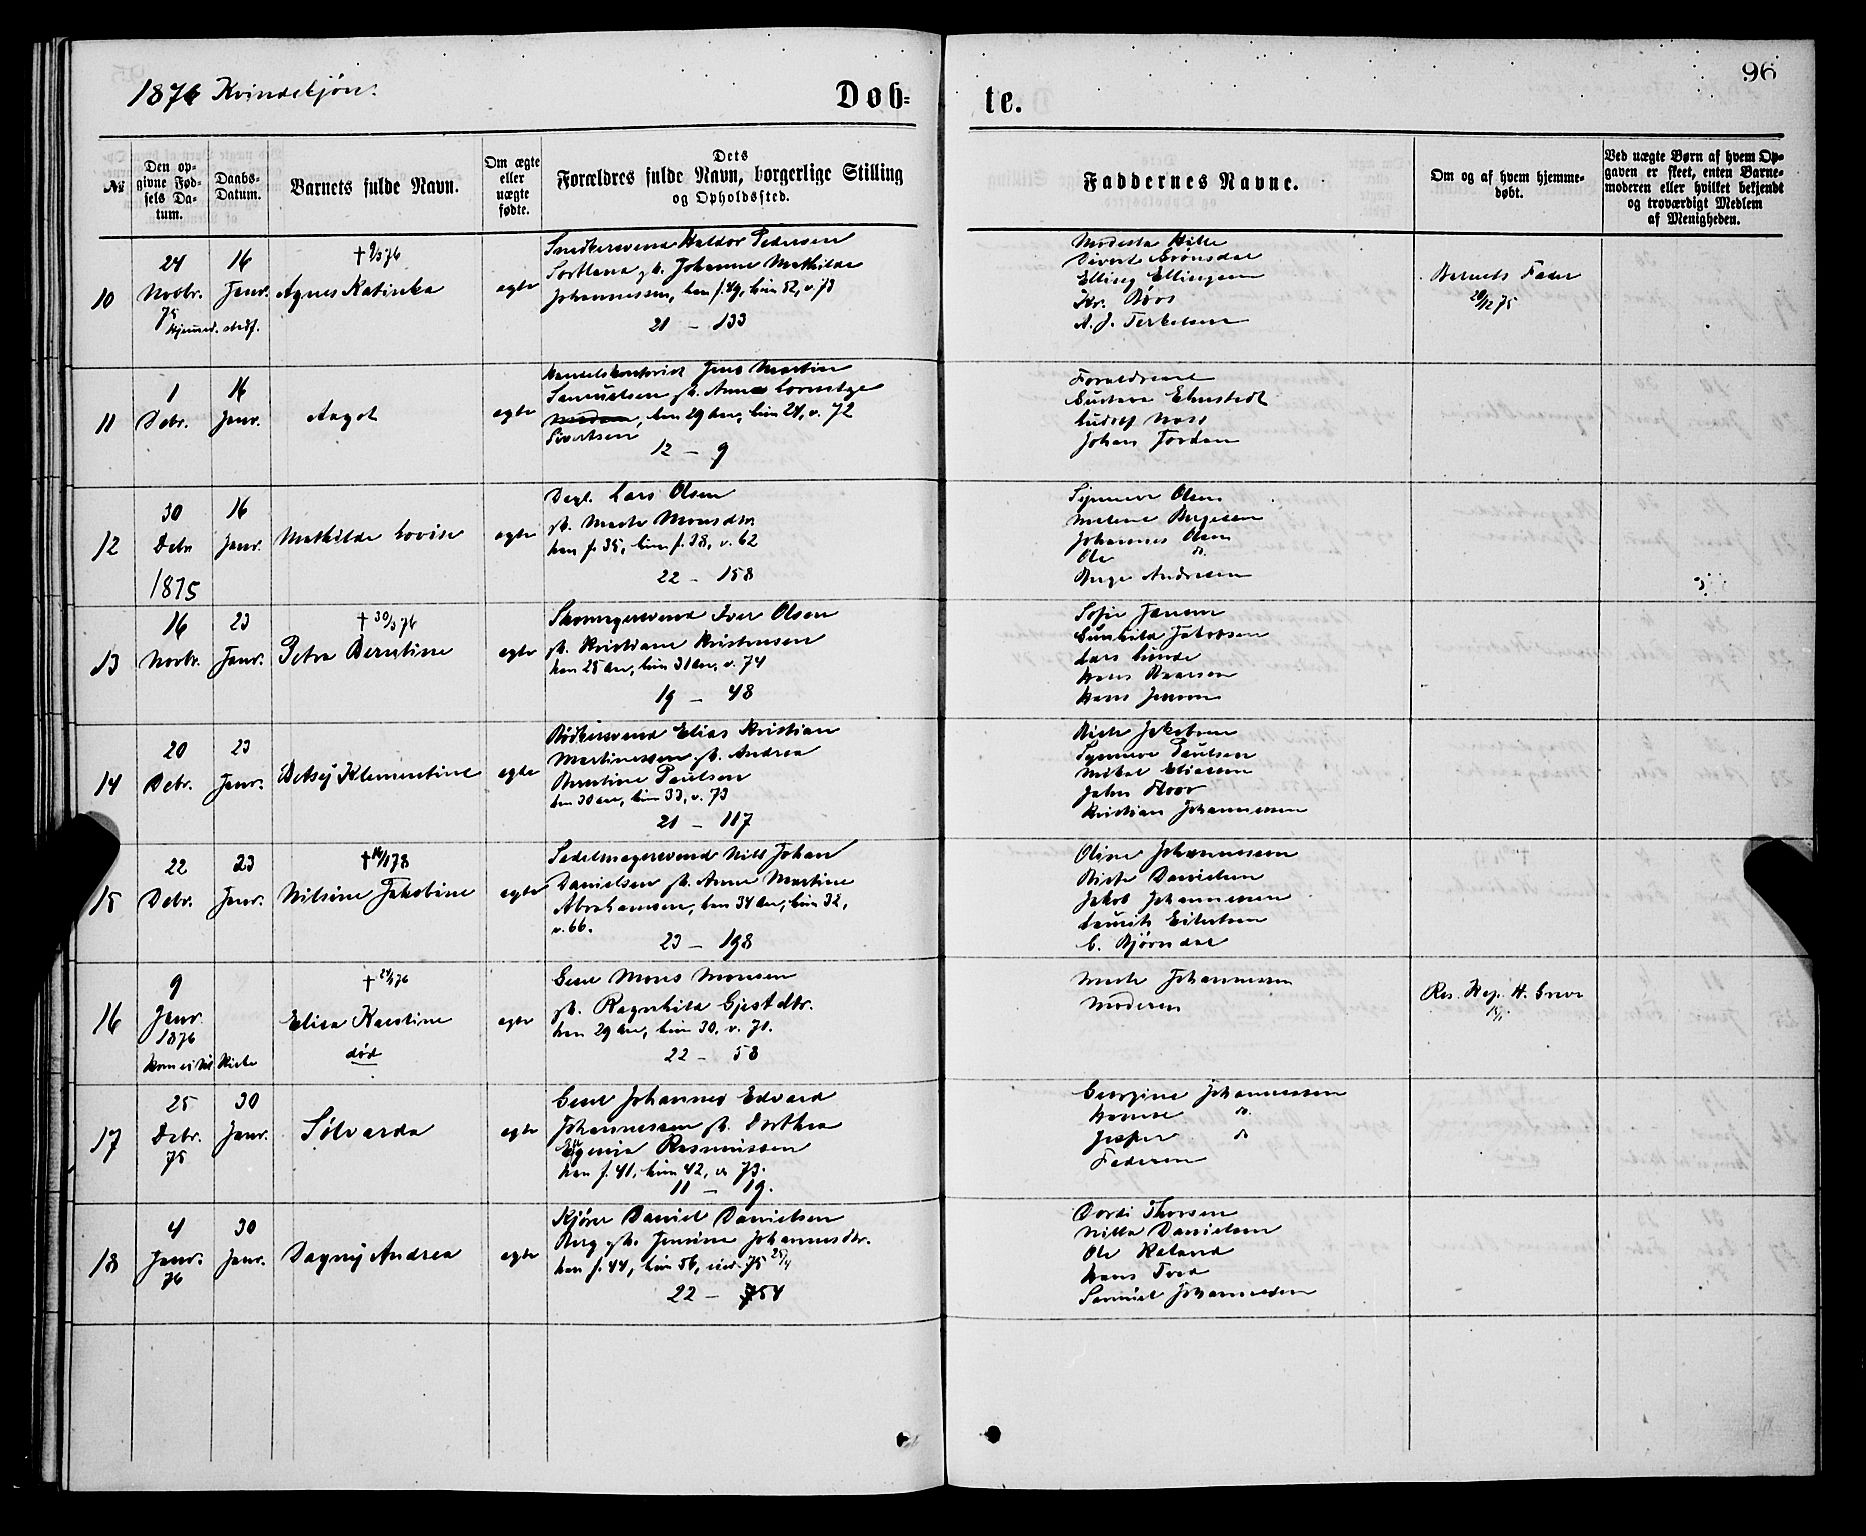 96
1876 Kvindekjøn.
Døb-
te.
№
Den op-
givne Fød-
sels Da-
tum.
Daabs-
Datum.
Barnets fulde Navn.
Om ægte
eller
uægte
fødte.
Dets
Forældres fulde Navn, borgerlige Stilling
og Opholdssted.
Faddernes Navne.
Om og af hvem hjemme-
døbt.
Ved uægte Børn af hvem Op-
gaven er skeet, enten Barne-
moderen eller hvilket bekjendt
og troværdigt Medlem
af Menigheden.
10
24
Novbr.
75
Hjemmed. stadf.
16
Janr.
† 9/3 76
Agnes Katinka
egte
Snedkersvend Haldor Pedersen
Johanne Mathilde
Johannessen, han f. 49, hun 52, v. 73
21 – 133
Modesta Hille
Elling Ellingsen
A. J. Terkelsen
Barnets Fader
75
11
1
Debr.
16
Janr.
Aagot
egte
Jens Martin
Samuelsen
han 29 Aar, hun 24, v. 72
Sivertsen
12 – 9
Forældrene
Gustava Elmstedt
Johan Jordan
12
30
Debr
1875
16
Janr.
Mathilde Lovise
egte
Dagl. Lars Olsen
Marte Monsdtr.
han f. 35, hun f. 38, v. 62
22 – 158
Synneve Olsen
Malene Børgesen
Johannes Olsen
Ole do.
Børge Andersen
13
16
Novbr.
23
Janr.
† 30/3 76
Petra Berntine
egte
Skomagersvend Iver Olsen
Kristiane Kristensen
han 25 Aar, hun 31 Aar, v. 74
19 – 48
Sofie Jansen
Gunhild Jakobsen
Lars Lunde
Hans Jensen
14
20
Debr.
23
Janr.
Betsy Klementine
egte
Bødkersvend Elias Kristian
Martinessen Andrea
Berntine Paulsen
han 30 Aar, hun 33, v. 73
21 – 117
Birte Jakobsen
Synneve Paulsen
Mikal Eliassen
Kristian Johannessen
15
22
Debr.
23
Janr.
Nilsine Jakobine
egte
Sadelmagersvend Nils Johan
Danielsen Anne Martine
Abrahamsen, han 34 Aar, hun 32,
v. 66.
23 – 198
Oline Johannessen
Birte Danielsen
Jakob Johannessen
Laurits Eilertsen
C. Bjørndal
16
9
Janr.
1876
Kom ei til Kirke
Elisa Karstine
død
egte
Mons Monsen
Ragnhild Gjestdtr.
han 29 Aar, hun 30, v. 71.
22 – 58
Marte Johannessen
Moderen
Res. Kap. H. Greve
17
25
Debr.
75
30
Janr.
Sølvarda
egte
Johannes Edvard
Johannessen Dorthea
Eugenia Rasmussen
han f. 41, hun 42, v. 73.
11 – 19.
Georgine Johannessen
Hanna do.
Jesper do
Faderen
18
4
Janr.
76
30
Janr.
Dagny Andrea
egte
Kjører Daniel Danielsen
Berg Jensine Johannesdtr.
han f. 44, hun 56, 75
22 – 54
Dordi Thorsen
Nilla Danielsen
Ole Haland
Hans Tved
Samuel Johannesen